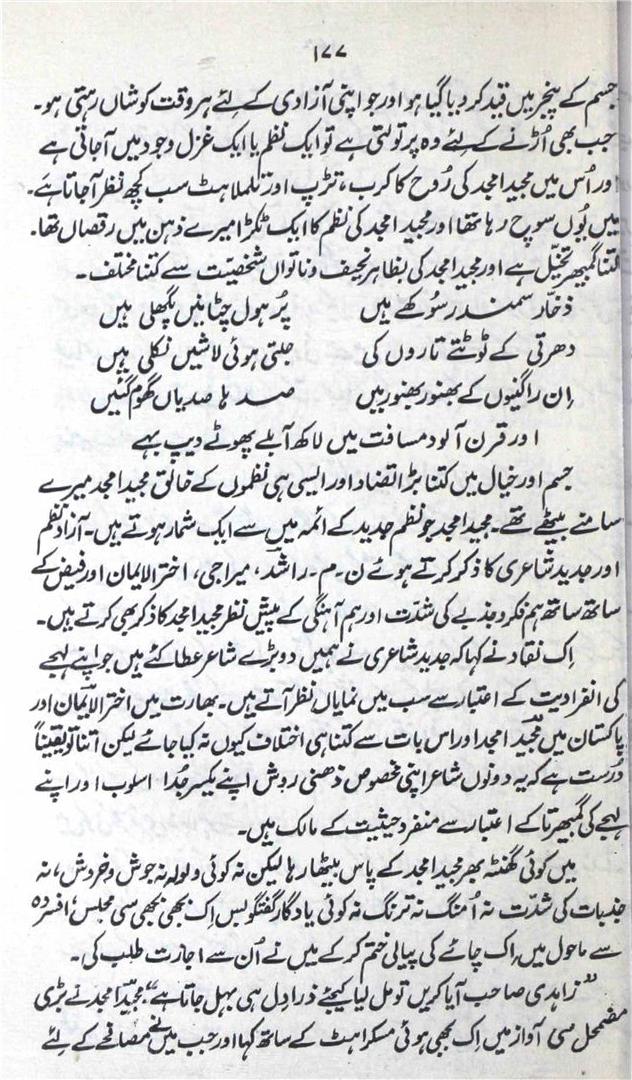 ۱۷۷
جسم کے پنجر میں قید کر دیا گیا ہو اور جو اپنی آزادی کے لئے ہر وقت کوشاں رہتی ہو۔
جب بھی اُڑنے کے لئے وہ پر تولتی ہے تو ایک نظم یا ایک غزل وجود میں آجاتی ہے
اور اُس میں مجید امجد کی رُوح کا کرب، تڑپ اور تلملاہٹ سب کچھ نظر آجاتا ہے۔
میں یُوں سوچ رہا تھا اور مجید امجد کی نظم کا ایک ٹکڑا میرے ذہن میں رقصاں تھا۔
کتنا گمبھیر تخیّل ہے اور مجید امجد کی بظاہر نحیف و ناتواں شخصیّت سے کتنا مختلف۔
ذخّار سمندر سُوکھے ہیں پُر ہول چٹانیں پگھلی ہیں
دھرتی کے ٹوٹتے تاروں کی جلتی ہوئی لاشیں نکلی ہیں
اِن راگنیوں کے بھنور بھنور میں صدہا صدیاں گھوم گئیں
اور قرن آلود مسافت میں لاکھ آبلے پھوٹے دیپ بہے
جسم اور خیال میں کتنا بڑا تضاد اور ایسی ہی نظموں کے خالق مجید امجد میرے
سامنے بیٹھے تھے۔ مجید امجد جو نظم جدید کے ائمہ میں سے ایک شمار ہوتے ہیں۔ آزاد نظم
اور جدید شاعری کا ذکر کرتے ہوئے ن۔م۔ راشد، میراجی، اختر الایمان اور فیض کے
ساتھ ساتھ ہم فکر و جذبے کی شدّت اور ہم آہنگی کے پیش نظر مجید امجد کا ذکر بھی کرتے ہیں۔
اِک نقاد نے کہا کہ جدید شاعری نے ہمیں دو بڑے شاعر عطا کئے ہیں جو اپنے لہجے
کی انفرادیت کے اعتبار سے سب میں نمایاں نظر آتے ہیں۔ بھارت میں اختر الایمان اور
پاکستان میں مجید امجد اور اس بات سے کتنا ہی اختلاف کیوں نہ کیا جائے لیکن اتنا تو یقیناً
دُرست ہے کہ یہ دونوں شاعر اپنی مخصوص ذھنی روش اپنے یکسر جُدا اسلوب اور اپنے
لہجے کی گمبھیرتا کے اعتبار سے منفرد حیثیت کے مالک ہیں۔
میں کوئی گھنٹہ بھر مجید امجد کے پاس بیٹھا رہا لیکن نہ کوئی ولولہ نہ جوش و خروش، نہ
جذبات کی شدّت نہ اُمنگ نہ ترنگ نہ کوئی یادگار گفتگو بس اِک بجھی بجھی سی مجلس، افسردہ
سے ماحول میں اِک چائے کی پیالی ختم کر کے میں نے اُن سے اجازت طلب کی۔
”زاہدی صاحب آیا کریں تو مل لیا کیجئے ذرا دِل ہی بہل جاتا ہے“۔ مجید امجد نے بڑی
مضمحل سی آواز میں اِک بجھی ہوئی مسکراہٹ کے ساتھ کہا اور جب میں نے مصافحے کے لئے